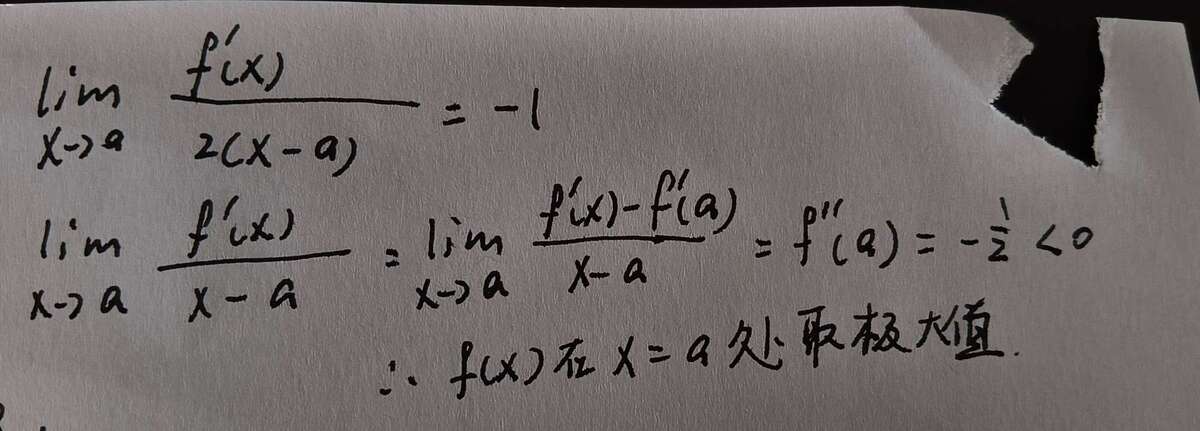 lim x→a f'(x) / 2(x-a) = -1
lim x→a f'(x) / x-a = lim x→a f'(x)-f'(a) / x-a = f''(a) = -1/2 <0
∴ f(x)在x=a处取极大值.